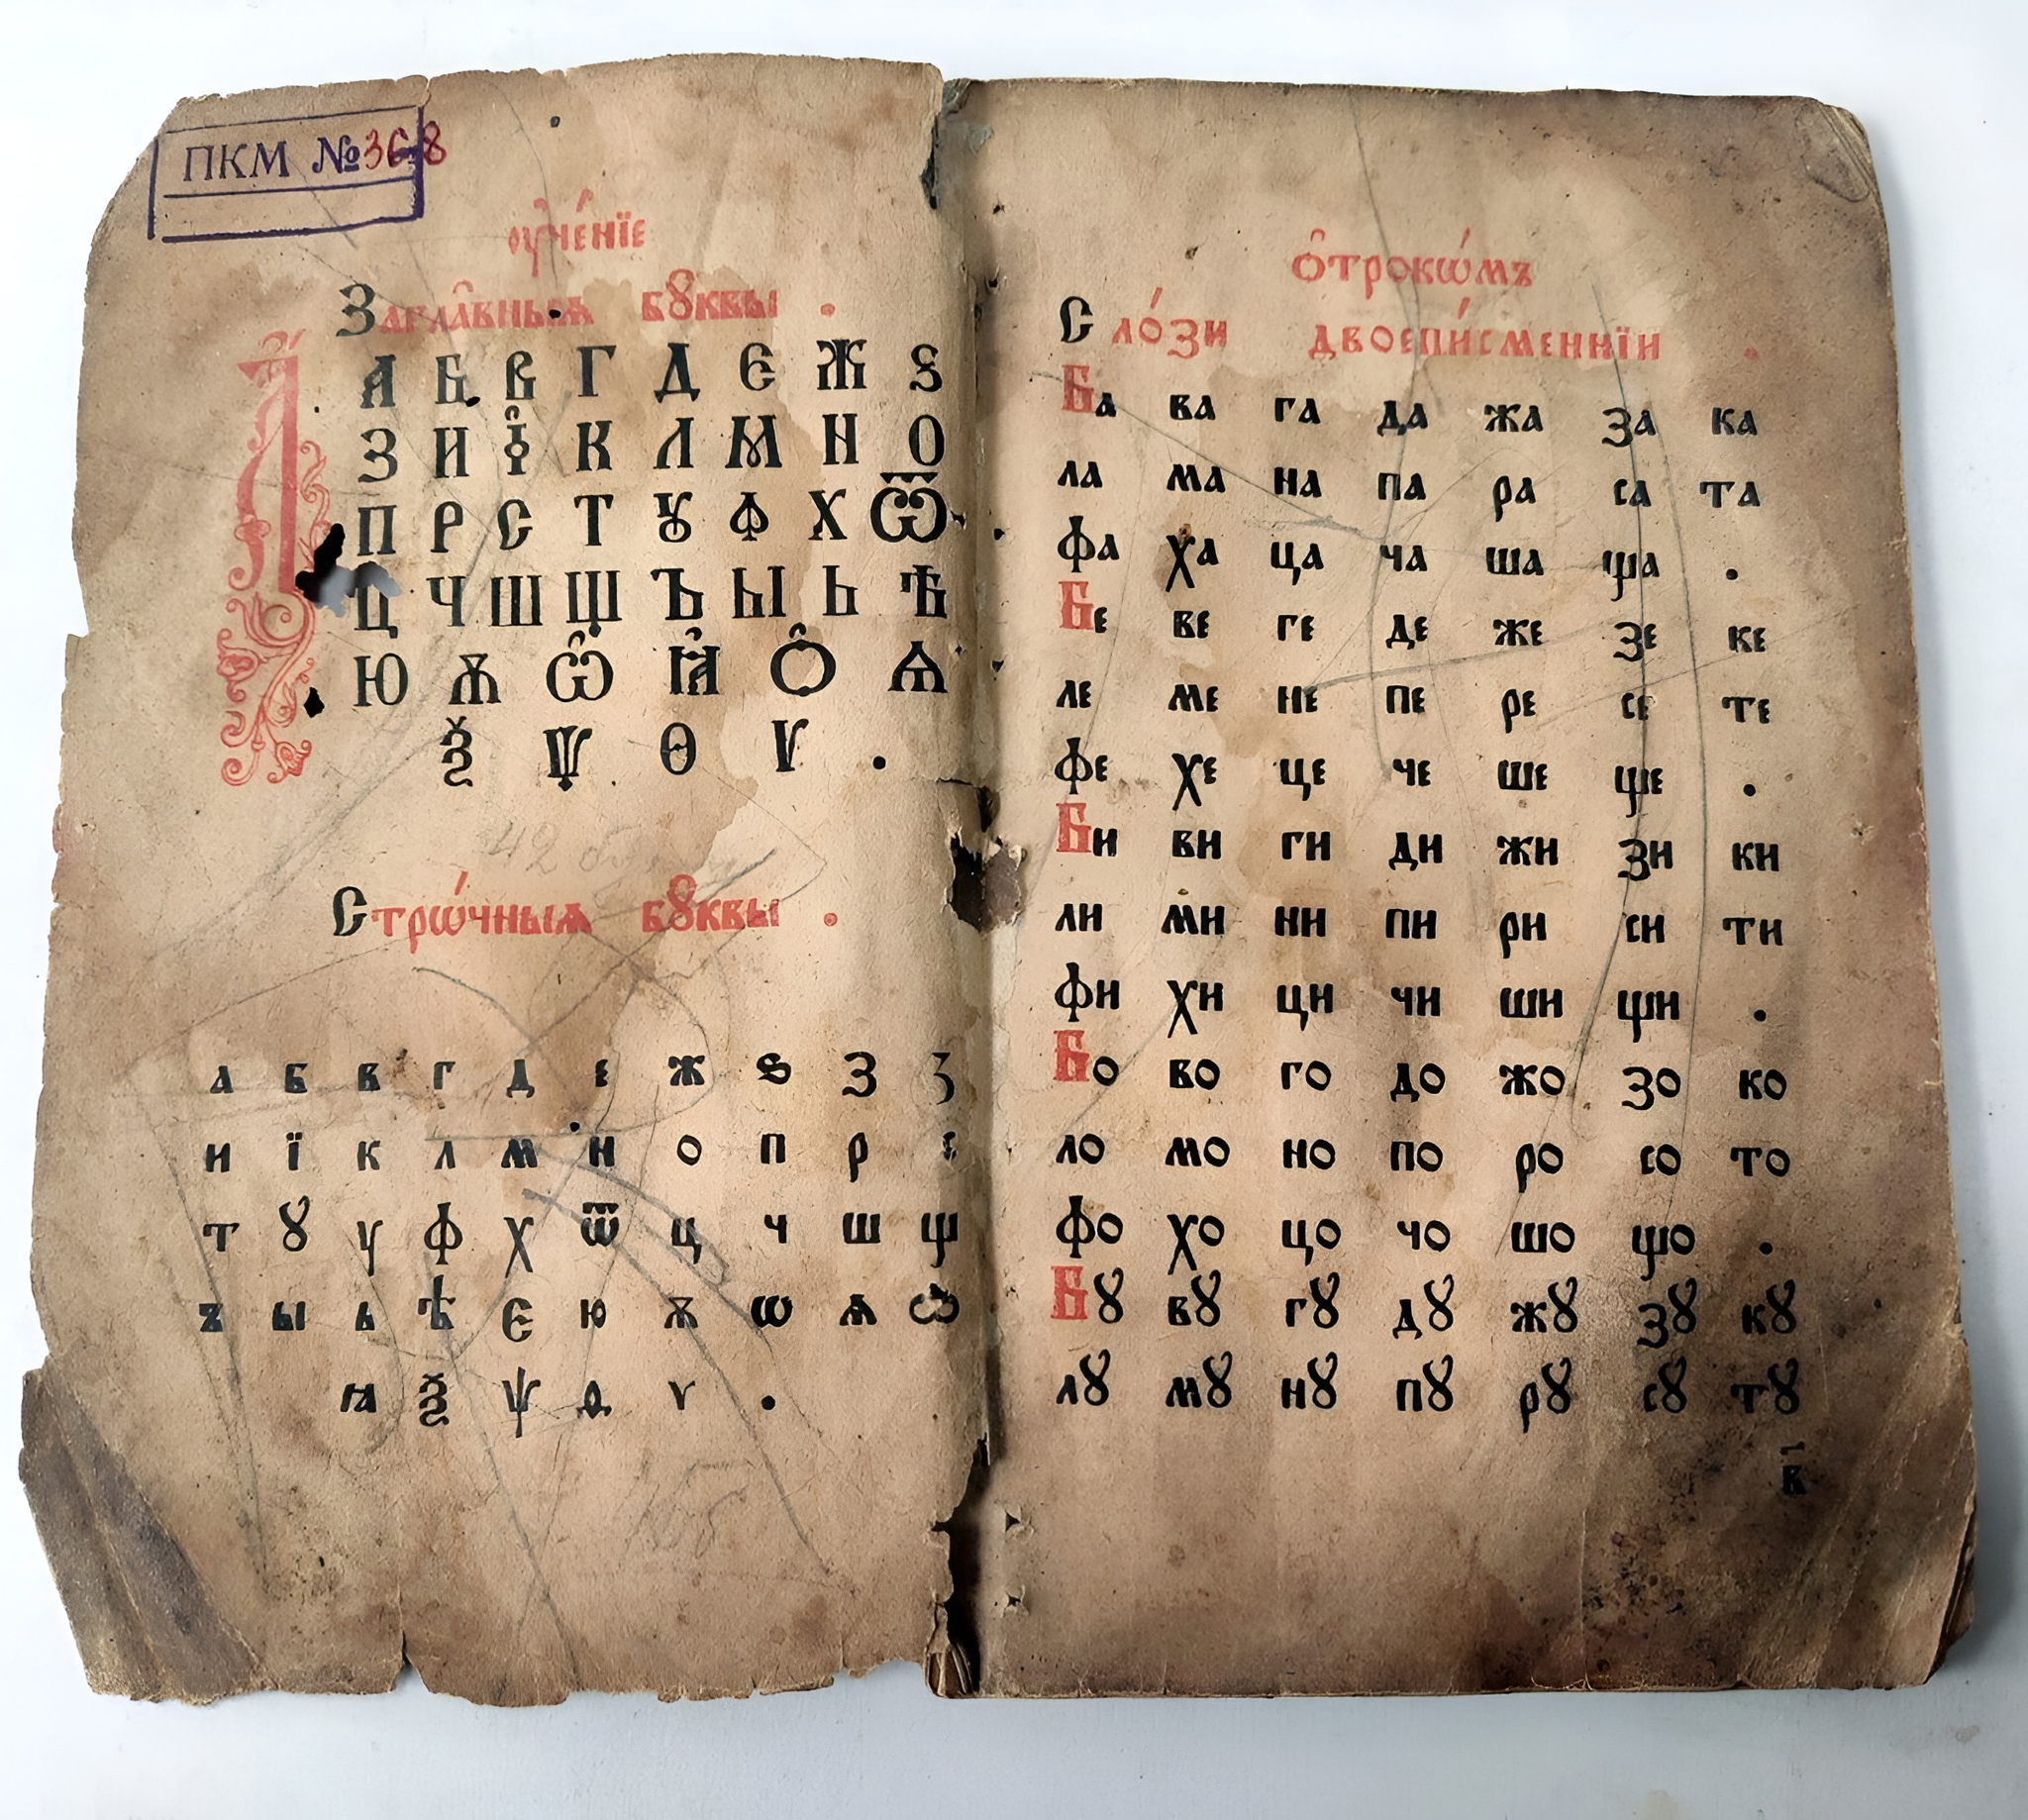 ПКМ №368
оу҆че́нїе
Загла̑вныѧ бꙋквы .
А Б В Г Д Є Ж Ѕ
З И І К Л М Н О
П Р С Т Ꙋ Ф Х Ѿ
Ц Ч Ш Щ Ъ Ы Ь Ѣ
Ю Ѫ Ѽ Ꙗ Ѻ Ѧ
Ѯ Ѱ Ѳ Ѵ .
42
Стрѡ́чныѧ бꙋквы .
а б в г д е ж ѕ З з
и ї к л м н о п р с
т ꙋ у ф х ѿ ц ч ш щ
ъ ы ь ѣ є ю ѫ ѡ ѧ ѽ
ꙗ ѯ ѱ ѳ ѵ .
о҆̑трокѡ́мъ
Сло́зи двоепи́сменнїи .
Ба ва га да жа за ка
ла ма на па ра са та
фа ха ца ча ша ща .
Бе ве ге де же зе ке
ле ме не пе ре се те
фе хе це че ше ще .
Би ви ги ди жи зи ки
ли ми ни пи ри си ти
фи хи ци чи ши щи .
Бо во го до жо зо ко
ло мо но по ро со то
фо хо цо чо шо що .
Бꙋ вꙋ гꙋ дꙋ жꙋ зꙋ кꙋ
лꙋ мꙋ нꙋ пꙋ рꙋ сꙋ тꙋ
в